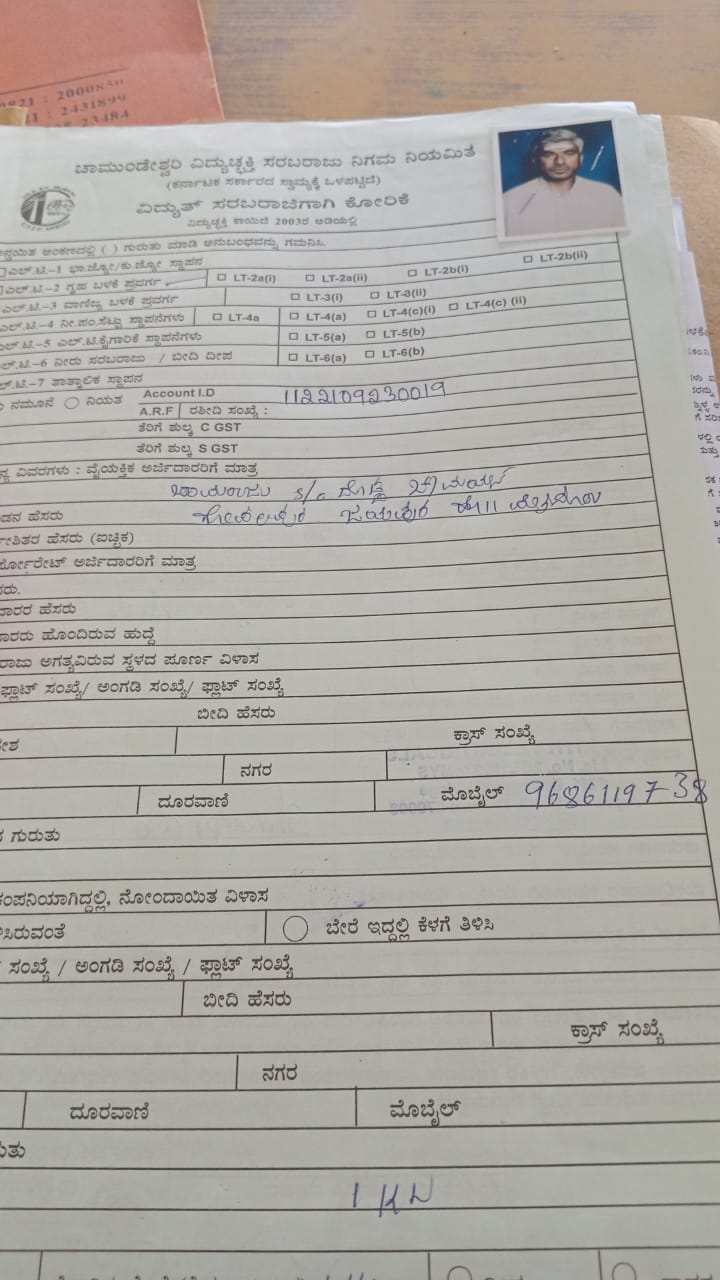 0821 : 2000840
: 2431899
23484
ಚಾಮುಂಡೇಶ್ವರಿ ವಿದ್ಯುಚ್ಛಕ್ತಿ ಸರಬರಾಜು ನಿಗಮ ನಿಯಮಿತ
(ಕರ್ನಾಟಕ ಸರ್ಕಾರದ ಸ್ವಾಮ್ಯಕ್ಕೆ ಒಳಪಟ್ಟಿದೆ)
ವಿದ್ಯುತ್ ಸರಬರಾಜಿಗಾಗಿ ಕೋರಿಕೆ
ವಿದ್ಯುಚ್ಛಕ್ತಿ ಕಾಯಿದೆ 2003ರ ಅಡಿಯಲ್ಲಿ
ಅಂಕಣದಲ್ಲಿ ( ) ಗುರುತು ಮಾಡಿ ಅನುಬಂಧವನ್ನು ಗಮನಿಸಿ.
ಎಲ್.ಟಿ.-1 ಭಾ.ಜ್ಯೋ/ಕು.ಜ್ಯೋ ಸ್ಥಾಪನ
ಎಲ್.ಟಿ.-2 ಗೃಹ ಬಳಕೆ ಪ್ರವರ್ಗ LT-2a(i) LT-2a(ii) LT-2b(i) LT-2b(ii)
ಎಲ್.ಟಿ.-3 ವಾಣಿಜ್ಯ ಬಳಕೆ ಪ್ರವರ್ಗ LT-3(i) LT-3(ii)
ಎಲ್.ಟಿ.-4 ನೀ.ಪಂ.ಸೆಟ್ಟು ಸ್ಥಾಪನೆಗಳು LT-4a LT-4(a) LT-4(c)(i) LT-4(c) (ii)
ಎಲ್.ಟಿ.-5 ಎಲ್.ಟಿ.ಕೈಗಾರಿಕೆ ಸ್ಥಾಪನೆಗಳು LT-5(a) LT-5(b)
ಎಲ್.ಟಿ.-6 ನೀರು ಸರಬರಾಜು / ಬೀದಿ ದೀಪ LT-6(a) LT-6(b)
ಎಲ್.ಟಿ.-7 ತಾತ್ಕಾಲಿಕ ಸ್ಥಾಪನ
ನಮೂನೆ ನಿಯತ Account I.D 1122109230019
A.R.F ರಶೀದಿ ಸಂಖ್ಯೆ :
ತೆರಿಗೆ ಶುಲ್ಕ C GST
ತೆರಿಗೆ ಶುಲ್ಕ S GST
ವಿವರಗಳು : ವೈಯಕ್ತಿಕ ಅರ್ಜಿದಾರರಿಗೆ ಮಾತ್ರ
s/o ದೊಡ್ಡ
ಹೆಸರು
ಹೆಸರು (ಐಚ್ಛಿಕ)
ರ್ಪೋರೇಟ್ ಅರ್ಜಿದಾರರಿಗೆ ಮಾತ್ರ
ಸರು.
ದಾರರ ಹೆಸರು
ದಾರರು ಹೊಂದಿರುವ ಹುದ್ದೆ
ರಾಜು ಅಗತ್ಯವಿರುವ ಸ್ಥಳದ ಪೂರ್ಣ ವಿಳಾಸ
ಫ್ಲಾಟ್ ಸಂಖ್ಯೆ/ ಅಂಗಡಿ ಸಂಖ್ಯೆ/ ಫ್ಲಾಟ್ ಸಂಖ್ಯೆ
ಬೀದಿ ಹೆಸರು
ದೇಶ ಕ್ರಾಸ್ ಸಂಖ್ಯೆ
ನಗರ
ದೂರವಾಣಿ ಮೊಬೈಲ್ 9686119738
ಗುರುತು
ಕಂಪನಿಯಾಗಿದ್ದಲ್ಲಿ, ನೋಂದಾಯಿತ ವಿಳಾಸ
ಸಿರುವಂತೆ ಬೇರೆ ಇದ್ದಲ್ಲಿ ಕೆಳಗೆ ತಿಳಿಸಿ
ಸಂಖ್ಯೆ / ಅಂಗಡಿ ಸಂಖ್ಯೆ / ಫ್ಲಾಟ್ ಸಂಖ್ಯೆ
ಬೀದಿ ಹೆಸರು
ಕ್ರಾಸ್ ಸಂಖ್ಯೆ
ನಗರ
ದೂರವಾಣಿ ಮೊಬೈಲ್
ರುತು
1 KW